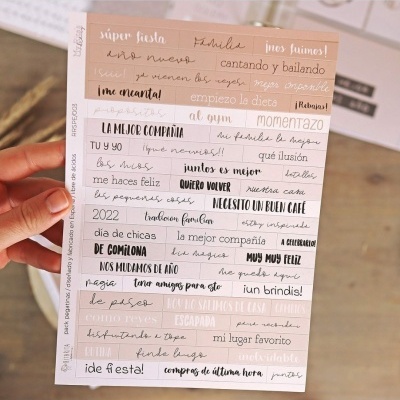 súper fiesta Familia ¡nos fuimos!
año nuevo cantando y bailando
¡sui! ya vienen los reyes mejor imposible
¡me encanta! empiezo la dieta ¡Rebajas!
propósitos al gym momentazo
LA MEJOR COMPAÑÍA mi familia la mejor
TU Y YO ¡¡que nervios!! qué ilusión
los míos juntos es mejor detalles
me haces feliz QUIERO VOLVER nuestra casa
las pequeñas cosas NECESITO UN BUEN CAFÉ
2022 tradición familiar estoy inspirada
día de chicas la mejor compañía A CELEBRARLO!
DE COMILONA día mágico MUY MUY FELIZ
NOS MUDAMOS DE AÑO me quedo aquí
magia tener amigos para esto ¡un brindis!
de paseo HOY NO SALIMOS DE CASA
como reyes ESCAPADA para recordar
disfrutando a tope mi lugar favorito
finde largo inolvidable
¡de fiesta! compras de última hora juntos